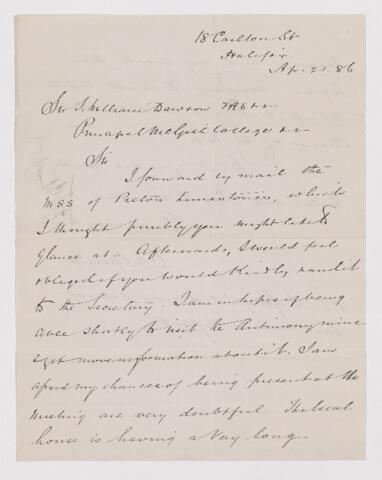 18 Carlton St
Halifax
Ap. 21. 86
Sir J. William Dawson FRS &c
Principal McGill College &c
Sir
I forward by mail the
MSS of Pictou Limestones, which
I thought possibly you might like to
glance at. Afterwards, I would feel
obliged if you would kindly hand it
to the Secretary. I am in hopes of being
able shortly to visit the Antimony mine
& get more information about it. I am
afraid my chances of being present at the
meeting are very doubtful. The local
house is having a very long